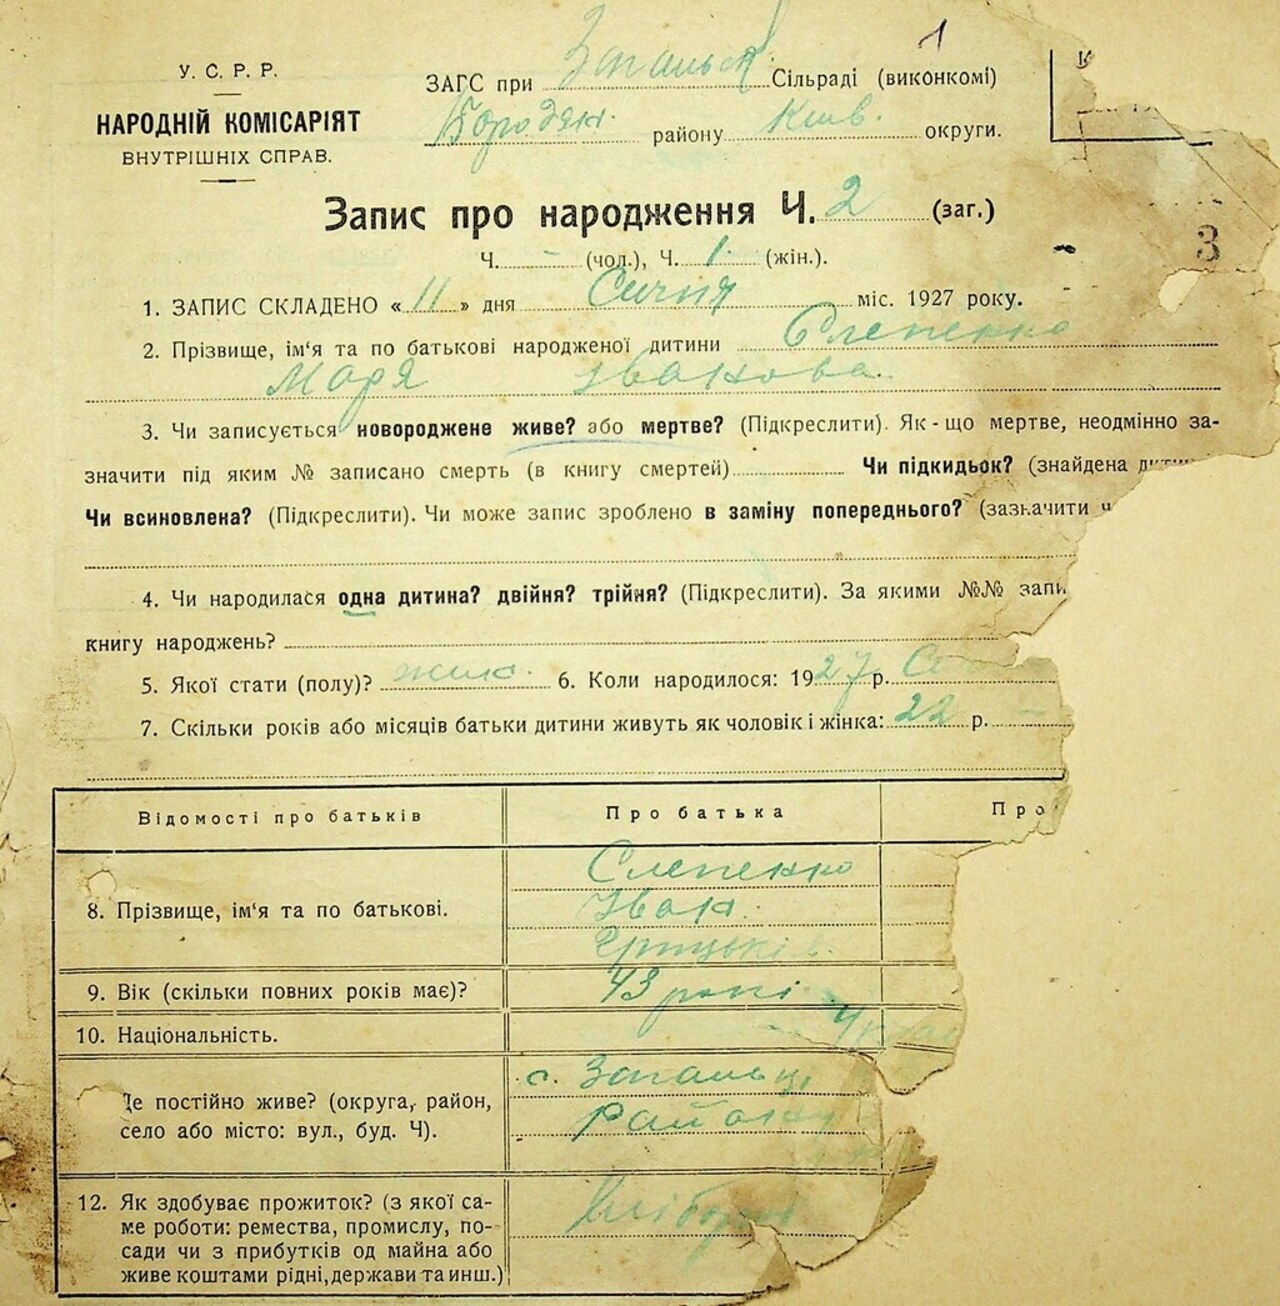 1
У. С. Р. Р.
НАРОДНІЙ КОМІСАРІЯТ
ВНУТРІШНІХ СПРАВ.
ЗАГС при Загальск. Сільраді (виконкомі)
Бородян. району Київ. округи.
Запис про народження Ч. 2 (заг.)
Ч. - (чол.), Ч. 1. (жін.).
3
1. ЗАПИС СКЛАДЕНО «11» дня Січня міс. 1927 року.
2. Прізвище, ім'я та по батькові народженої дитини Слепенко
Маря Івакова.
3. Чи записується новороджене живе? або мертве? (Підкреслити). Як-що мертве, неодмінно за-
значити під яким № записано смерть (в книгу смертей) Чи підкидьок? (знайдена
Чи всиновлена? (Підкреслити). Чи може запис зроблено в заміну попереднього? (зазначити ч
4. Чи народилася одна дитина? двійня? трійня? (Підкреслити). За якими №№ запи
книгу народжень?
5. Якої стати (полу)? жіно. 6. Коли народилося: 1927 р.
7. Скільки років або місяців батьки дитини живуть як чоловік і жінка: 22 р. -
Відомості про батьків Про батька Про
8. Прізвище, ім'я та по батькові.
Слепенко
Іван
Грицьків.
9. Вік (скільки повних років має)? 43 роки
10. Національність.
Де постійно живе? (округа, район,
село або місто: вул., буд. Ч).
с. Загальці
району
12. Як здобуває прожиток? (з якої са-
ме роботи: ремества, промислу, по-
сади чи з прибутків од майна або
живе коштами рідні, держави та инш.)